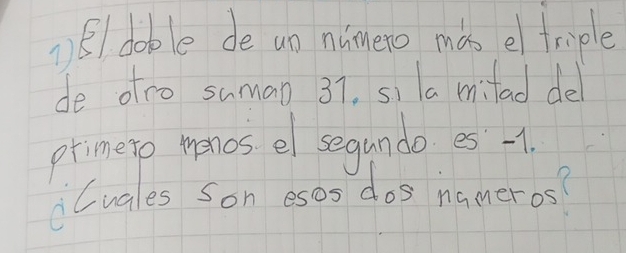 1) El doble de un número más el triple
de otro suman 31. si la mitad del
primero menos. el segundo. es -1.
¿Cuales son esos dos números?